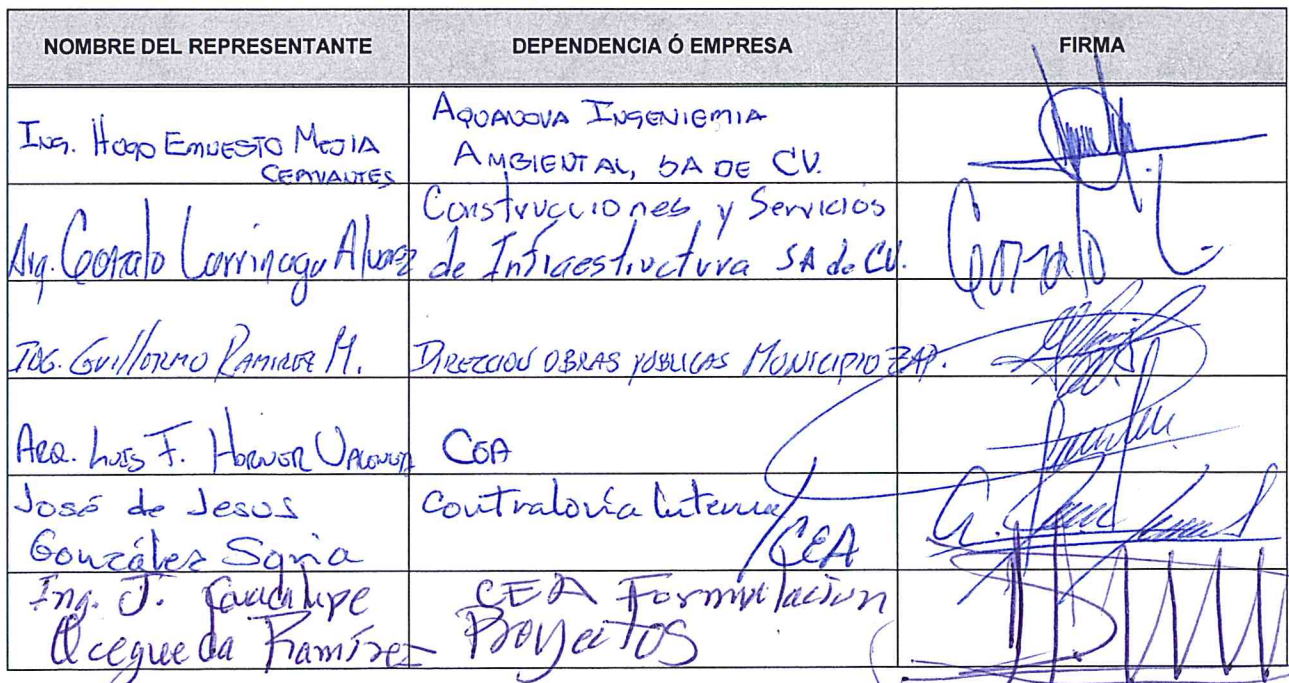 NOMBRE DEL REPRESENTANTE DEPENDENCIA Ó EMPRESA FIRMA
Ing. Hugo Ernesto Mejia
Cervantes
Aquanova Ingenieria
Ambiental, SA DE CV.
Arq. Gonzalo Larrinaga Alvarez
Construcciones y Servicios
de Infraestructura SA de CV.
Gonzalo L.
Ing. Guillermo Ramirez M.
Direccion Obras Publicas Municipio Zap.
Arq. Luis F.
José de Jesus
González Soria
Contraloría Interna
CEA
Ing. J. Guadalupe
Ocegueda Ramírez
CEA Formulacion
Proyectos